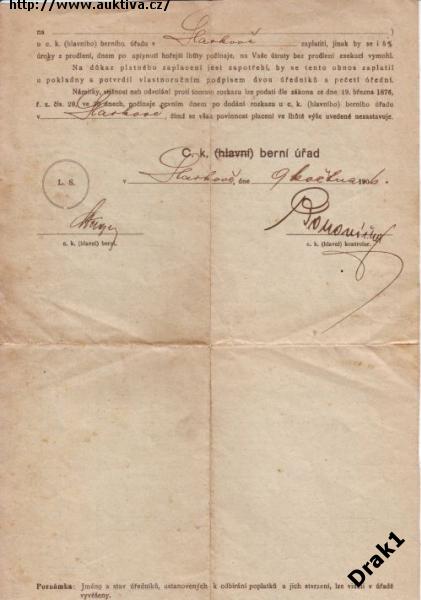 http://www.auktiva.cz/
na )
u c. k. (hlavního) berního úřadu v Slavkově zaplatiti, jinak by se i 5%
úroky z prodlení, dnem po uplynutí hořejší lhůty počínaje, na Vaše útraty bez prodlení exekucí vymohl.
Na důkaz platného zaplacení jest zapotřebí, by se tento obnos zaplatil
u pokladny a potvrdil vlastnoručním podpisem dvou úředníků s pečetí úřední.
Námitky, stížnost neb odvolání proti tomuto rozkazu lze podati dle zákona ze dne 19. března 1876,
ř. z. čís. 28, ve dnech, počínaje prvním dnem po dodání rozkazu u c. k. (hlavního) berního úřadu
v Slavkově čímž se však povinnost placení ve lhůtě výše uvedené nezastavuje.
C. k. (hlavní) berní úřad
L. S.
v Slavkově, dne 9 května 190
c. k. (hlavní) berní.
c. k. (hlavní) kontrolor.
Poznámka: Jméno a stav úředníků, ustanovených k odbírání poplatků a jich stvrzení, lze viděti v úřadě
vyvěšeny.
Drak1